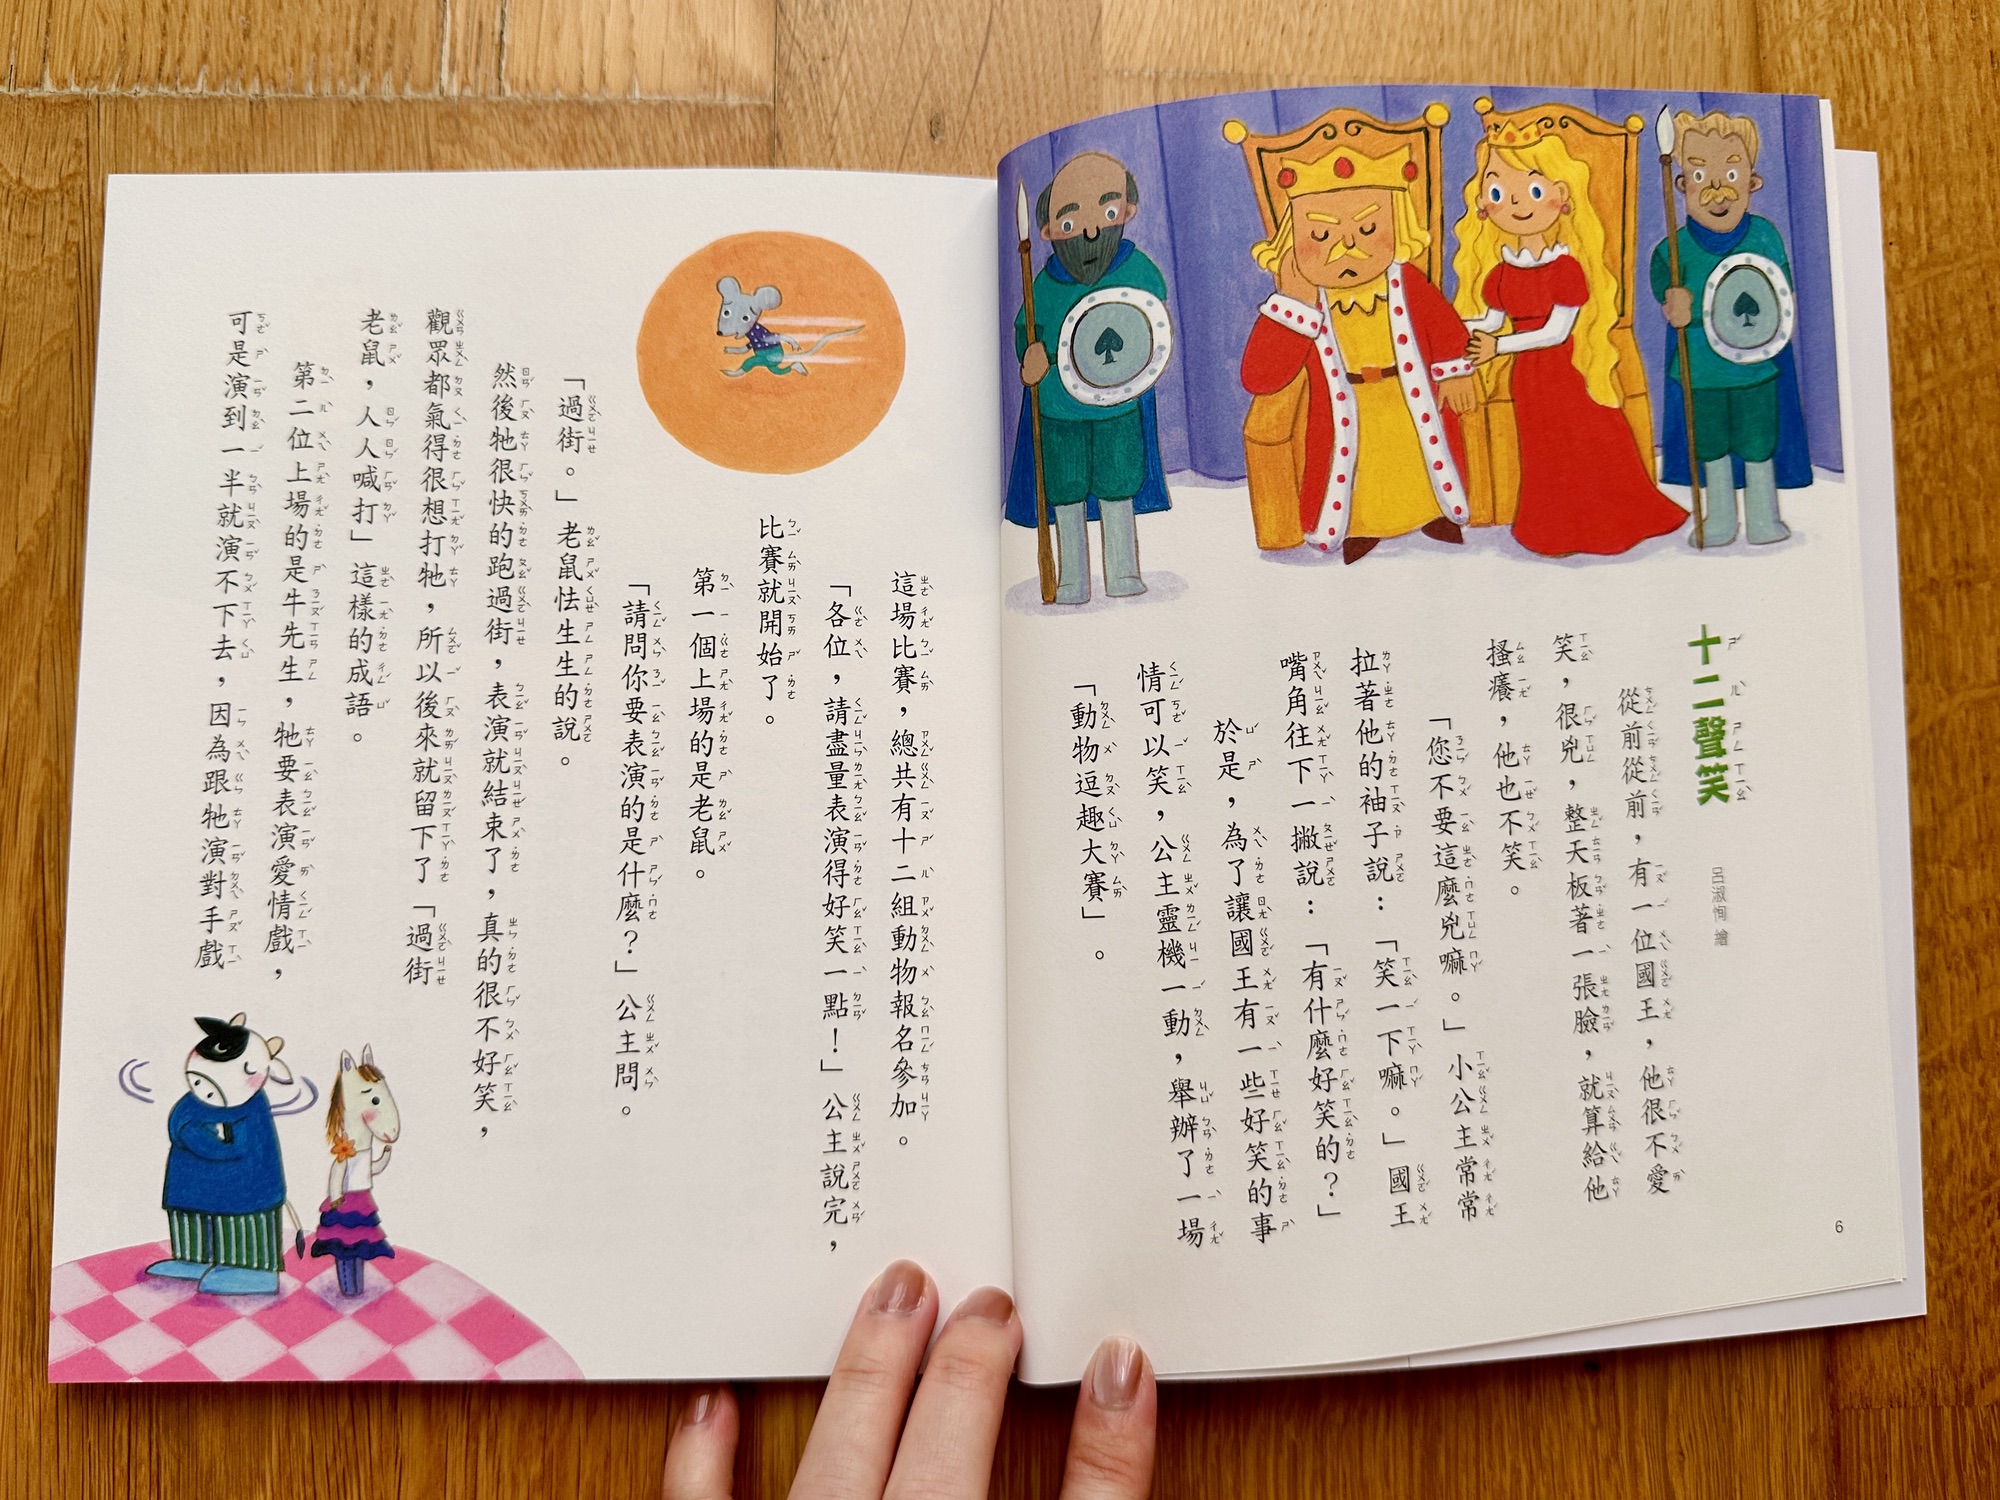 十二聲笑
呂淑恂 繪
從前從前，有一位國王，他很不愛
笑，很兇，整天板著一張臉，就算給他
搔癢，他也不笑。
「您不要這麼兇嘛。」小公主常常
拉著他的袖子說：「笑一下嘛。」國王
嘴角往下一撇說：「有什麼好笑的？」
於是，為了讓國王有一些好笑的事
情可以笑，公主靈機一動，舉辦了一場
「動物逗趣大賽」。
6
這場比賽，總共有十二組動物報名參加。
「各位，請盡量表演得好笑一點！」公主說完，
比賽就開始了。
第一個上場的是老鼠。
「請問你要表演的是什麼？」公主問。
「過街。」老鼠怯生生的說。
然後牠很快的跑過街，表演就結束了，真的很不好笑，
觀眾都氣得很想打牠，所以後來就留下了「過街
老鼠，人人喊打」這樣的成語。
第二位上場的是牛先生，牠要表演愛情戲，
可是演到一半就演不下去，因為跟牠演對手戲